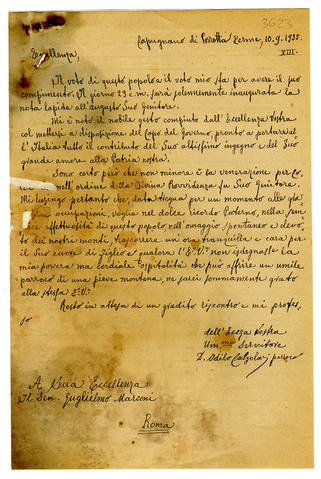 3623
Capugnano di Porretta Terme, 10.9.1935.
XIII.
Eccellenza,
Il voto di questo popolo e il voto mio sta per avere il suo
compimento. Il giorno 29 c.m. sarà solennemente inaugurata la
nota lapide all'augusto Suo Genitore.
Mi è noto il nobile gesto compiuto dall'Eccellenza Vostra
col mettersi a disposizione del Capo del Governo, pronto a portare al
l'Italia tutto il contributo del Suo altissimo ingegno e del Suo
grande amore alla Patria nostra.
Sono certo però che non minore è la venerazione per Co
lui che nell'ordine della Divina Provvidenza fu Suo Genitore.
Mi lusingo pertanto che, data tregua per un momento alle
occupazioni, voglia nel dolce ricordo Paterno, nella
effettuosità di questo popolo, nell'omaggio spontaneo e devo
to dei nostri monti, trascorrere un'ora tranquilla e cara per
il Suo cuore di figlio e qualora l'E. V. non isdegnasse la
mia povera ma cordiale ospitalità che può offrire un umile
parroco di una pieve montana, ne sarei sommamente grato
alla stessa E. V.
Resto in attesa di un gradito riscontro e mi profes
so
dell'Ecc.za Vostra
Um.mo Servitore
D. Adilo Calzolari parroco
A Sua Eccellenza
Il Sen. Guglielmo Marconi
Roma